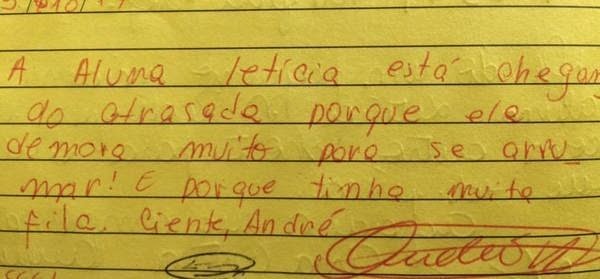 A Aluna letícia está chegan
do atrasada porque ela
demora muito para se arru_
mar! E porque tinha muita
fila. Ciente, André